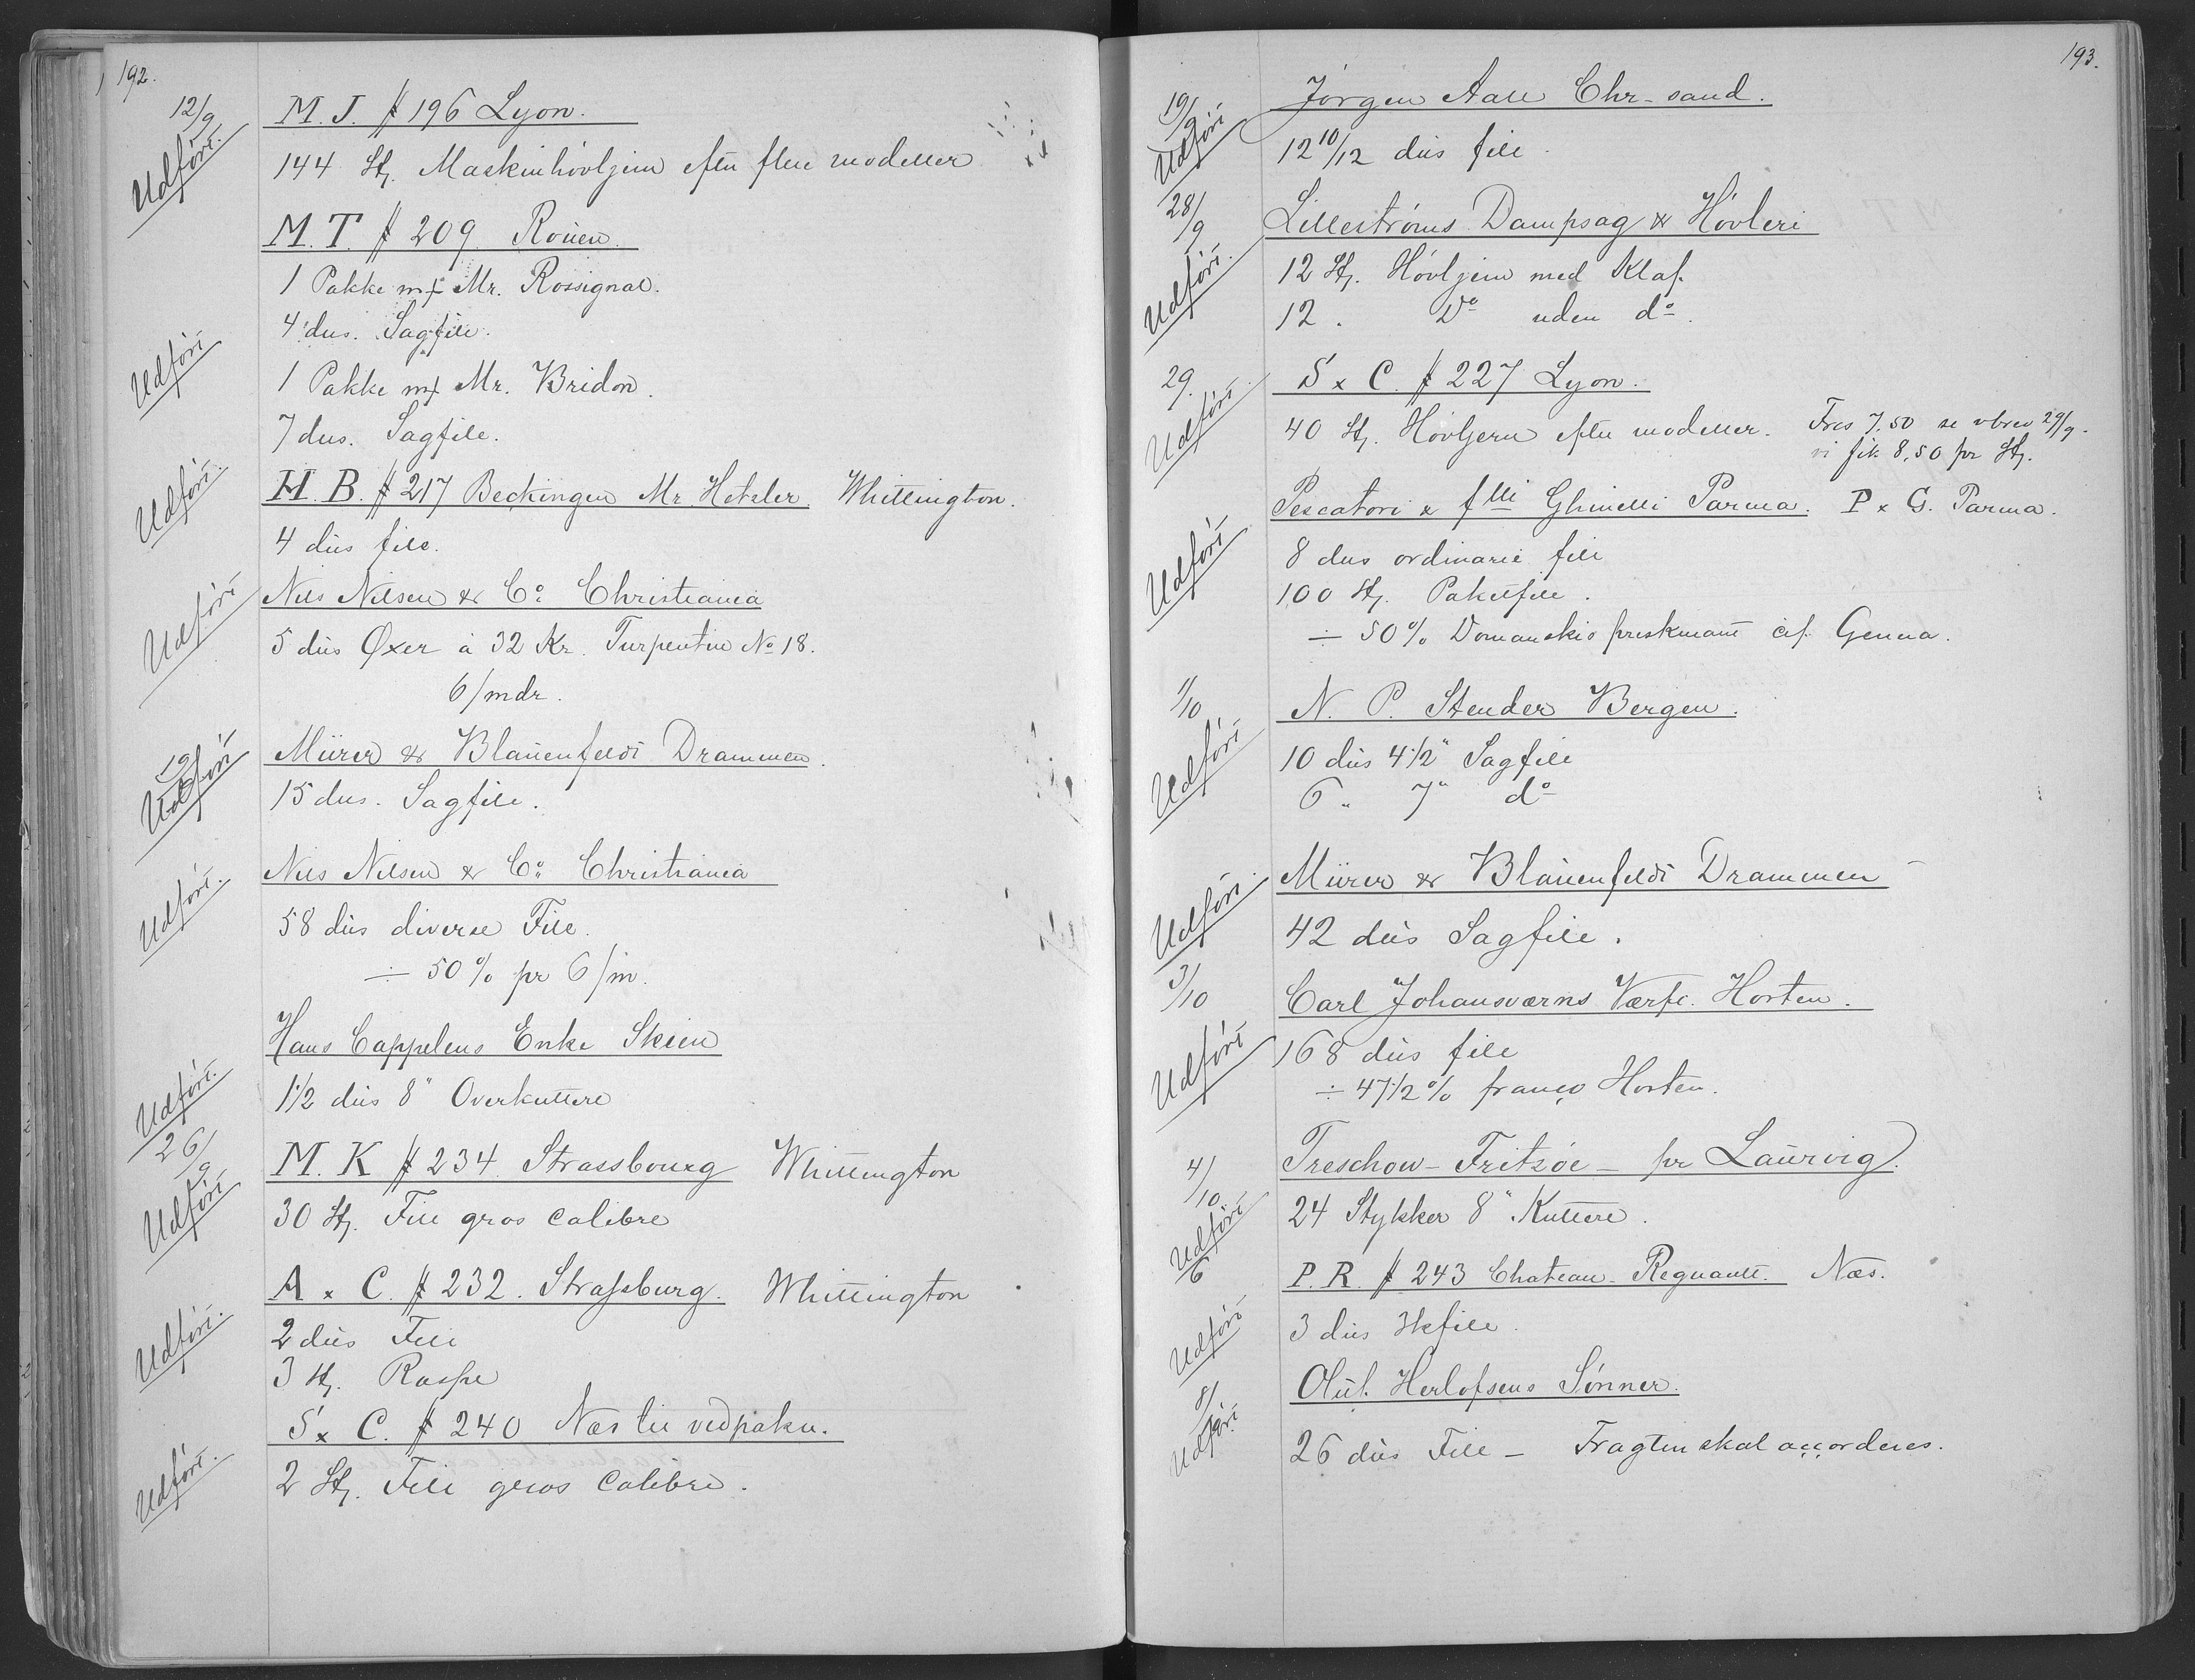 192.
12/9 M. J. # 196 Lyon.
Udført. 144 St. Maskinhövljern efter flere modeller
M. T. # 209 Rouen.
1 Pakke m/ Mr. Rossignol.
4 dus. Sagfile.
Udført 1 Pakke m/ Mr. Bridon.
7 dus. Sagfile.
Udført. H. B. # 217 Beckingen Mr. Hetzler. Whittington.
4 dus file.
Udført Nils Nilsen & Co. Christiania
5 dus Øxer à 32 Kr. Turpentin No 18.
6/mdr.
19/9 Udført Mürer & Blauenfeldt Drammen.
15 dus. Sagfile.
Udført. Nils Nilsen & Co. Christiania
58 dus diverse File.
÷ 50% pr 6/m.
Hans Cappelens Enke Skien
Udført. 1 1/2 dus 8" Overkuttere
26/9 M. K # 234 Strassbourg Whittington
Udført 30 St. File gros calibre
A x C. # 232. Strassburg. Whittington
Udført. 2 dus File
3 St. Raspe
S x C. # 240 Næs til vedpakn.
Udført. 2 St. File gros Calibre.
193.
19/9 Jörgen Aall Chr-sand.
Udført 12 10/12 dus file.
28/9 Lilleströms Dampsag & Hövleri
Udført. 12 St. Hövljern med Klaf.
12 . Do uden do.
29. S x C. # 227 Lyon.
Udført. 40 St. Hövljern efter modeller. Frcs 7.50 se vbrev 29/9.
vi fik 8.50 pr St.
Pescatori & flli Ghinelli Parma. P x G. Parma.
Udført 8 dus ordinære file
100 St. Paketfile.
÷ 50% Domanskis preskurant cif. Genua.
1/10 N. P. Stender Bergen.
Udført 10 dus 4 1/2" Sagfile
6 " 7" do
Mürer & Blauenfeldt Drammen
Udført. 42 dus Sagfile.
3/10 Carl Johansværns Værft. Horten.
Udført 168 dus file
÷ 47 1/2 % franco Horten.
4/10 Treschow-Fritzöe - pr Laurvig.
Udført 24 Stykker 8" Kuttere.
6 P. R. # 243 Chateau-Regnault. Næs.
Udført 3 dus Skfile.
8/10 Oluf Herlofsens Sönner.
Udført 26 dus File - Fragten skal accorderes.